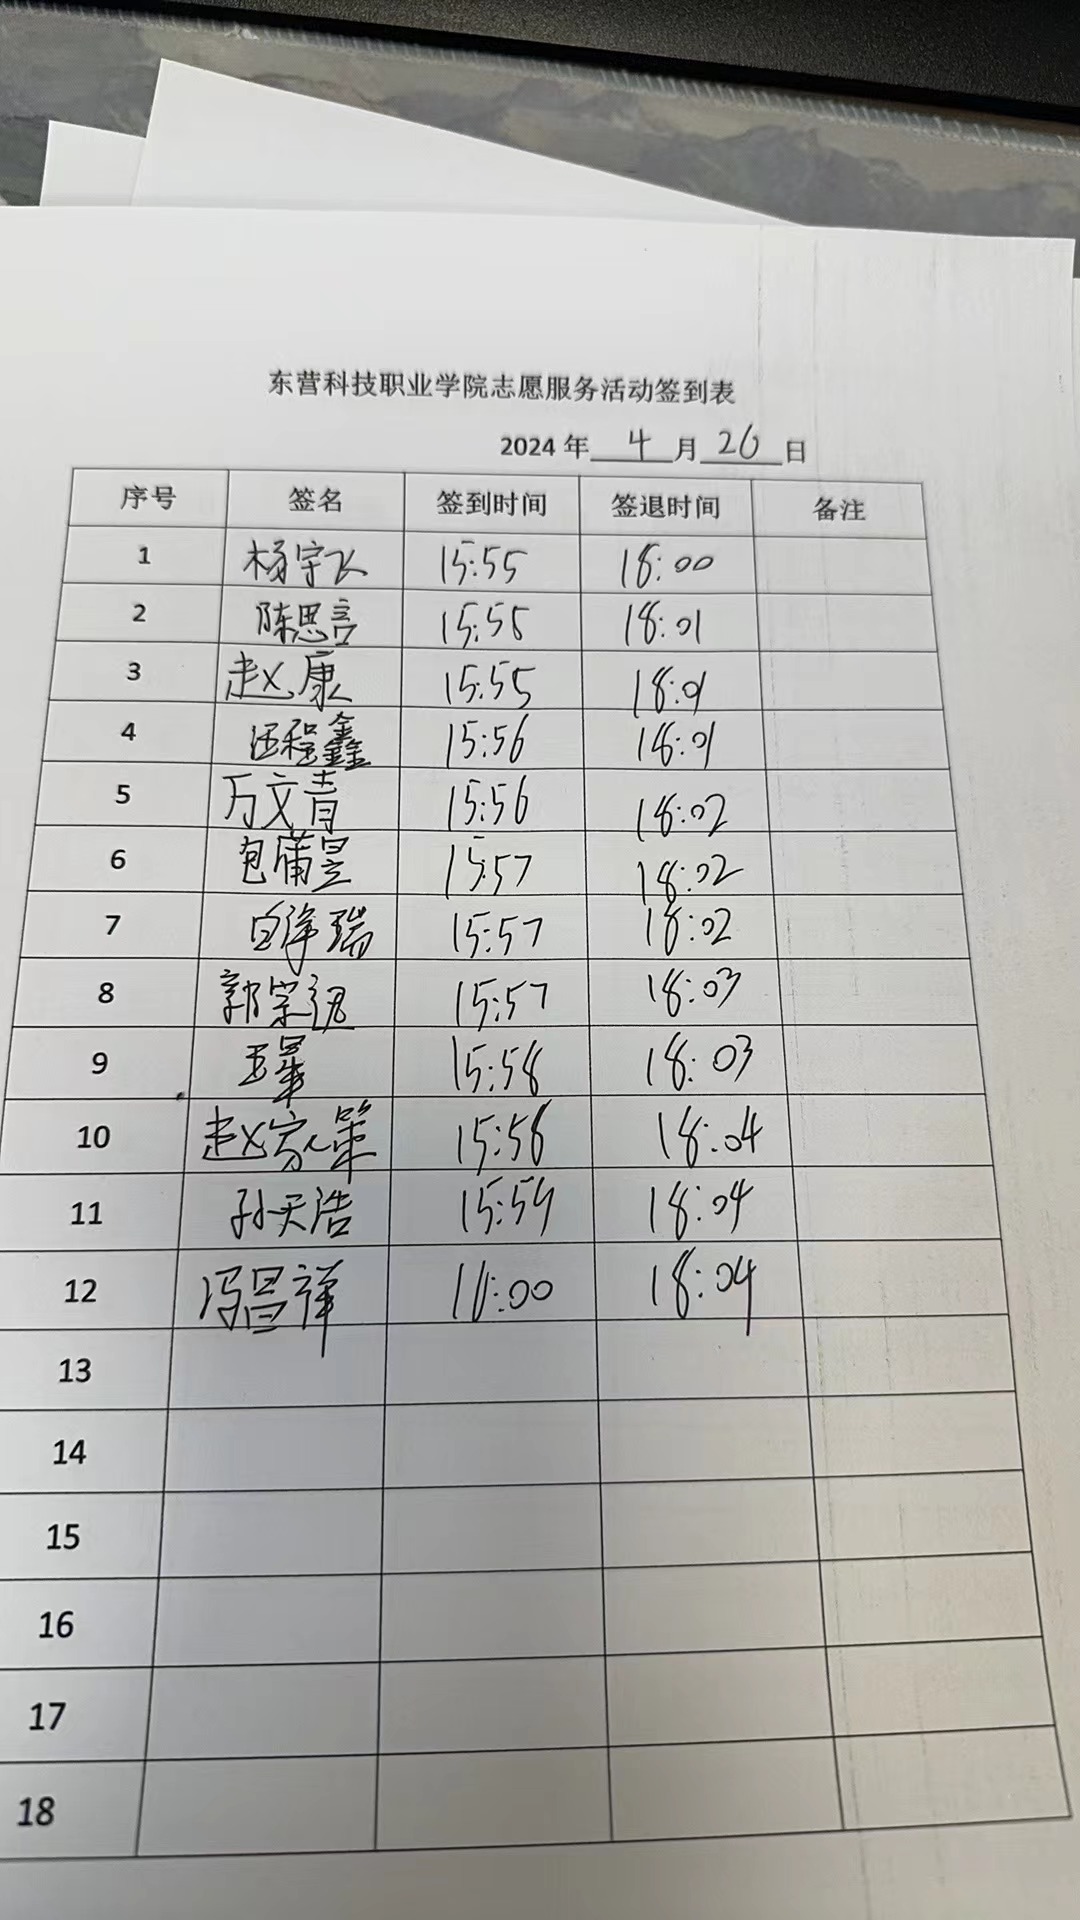 东营科技职业学院志愿服务活动签到表
2024年 4 月 26 日
序号 签名 签到时间 签退时间 备注
1 杨宇飞 15:55 18:00
2 陈思言 15:55 18:01
3 赵康 15:55 18:01
4 汪程鑫 15:56 18:01
5 万文青 15:56 18:02
6 包蒲昱 15:57 18:02
7 白泽瑞 15:57 18:02
8 郭宗 15:57 18:03
9 15:58 18:03
10 赵家策 15:58 18:04
11 孙天浩 15:59 18:04
12 冯昌祥 18:04
13
14
15
16
17
18